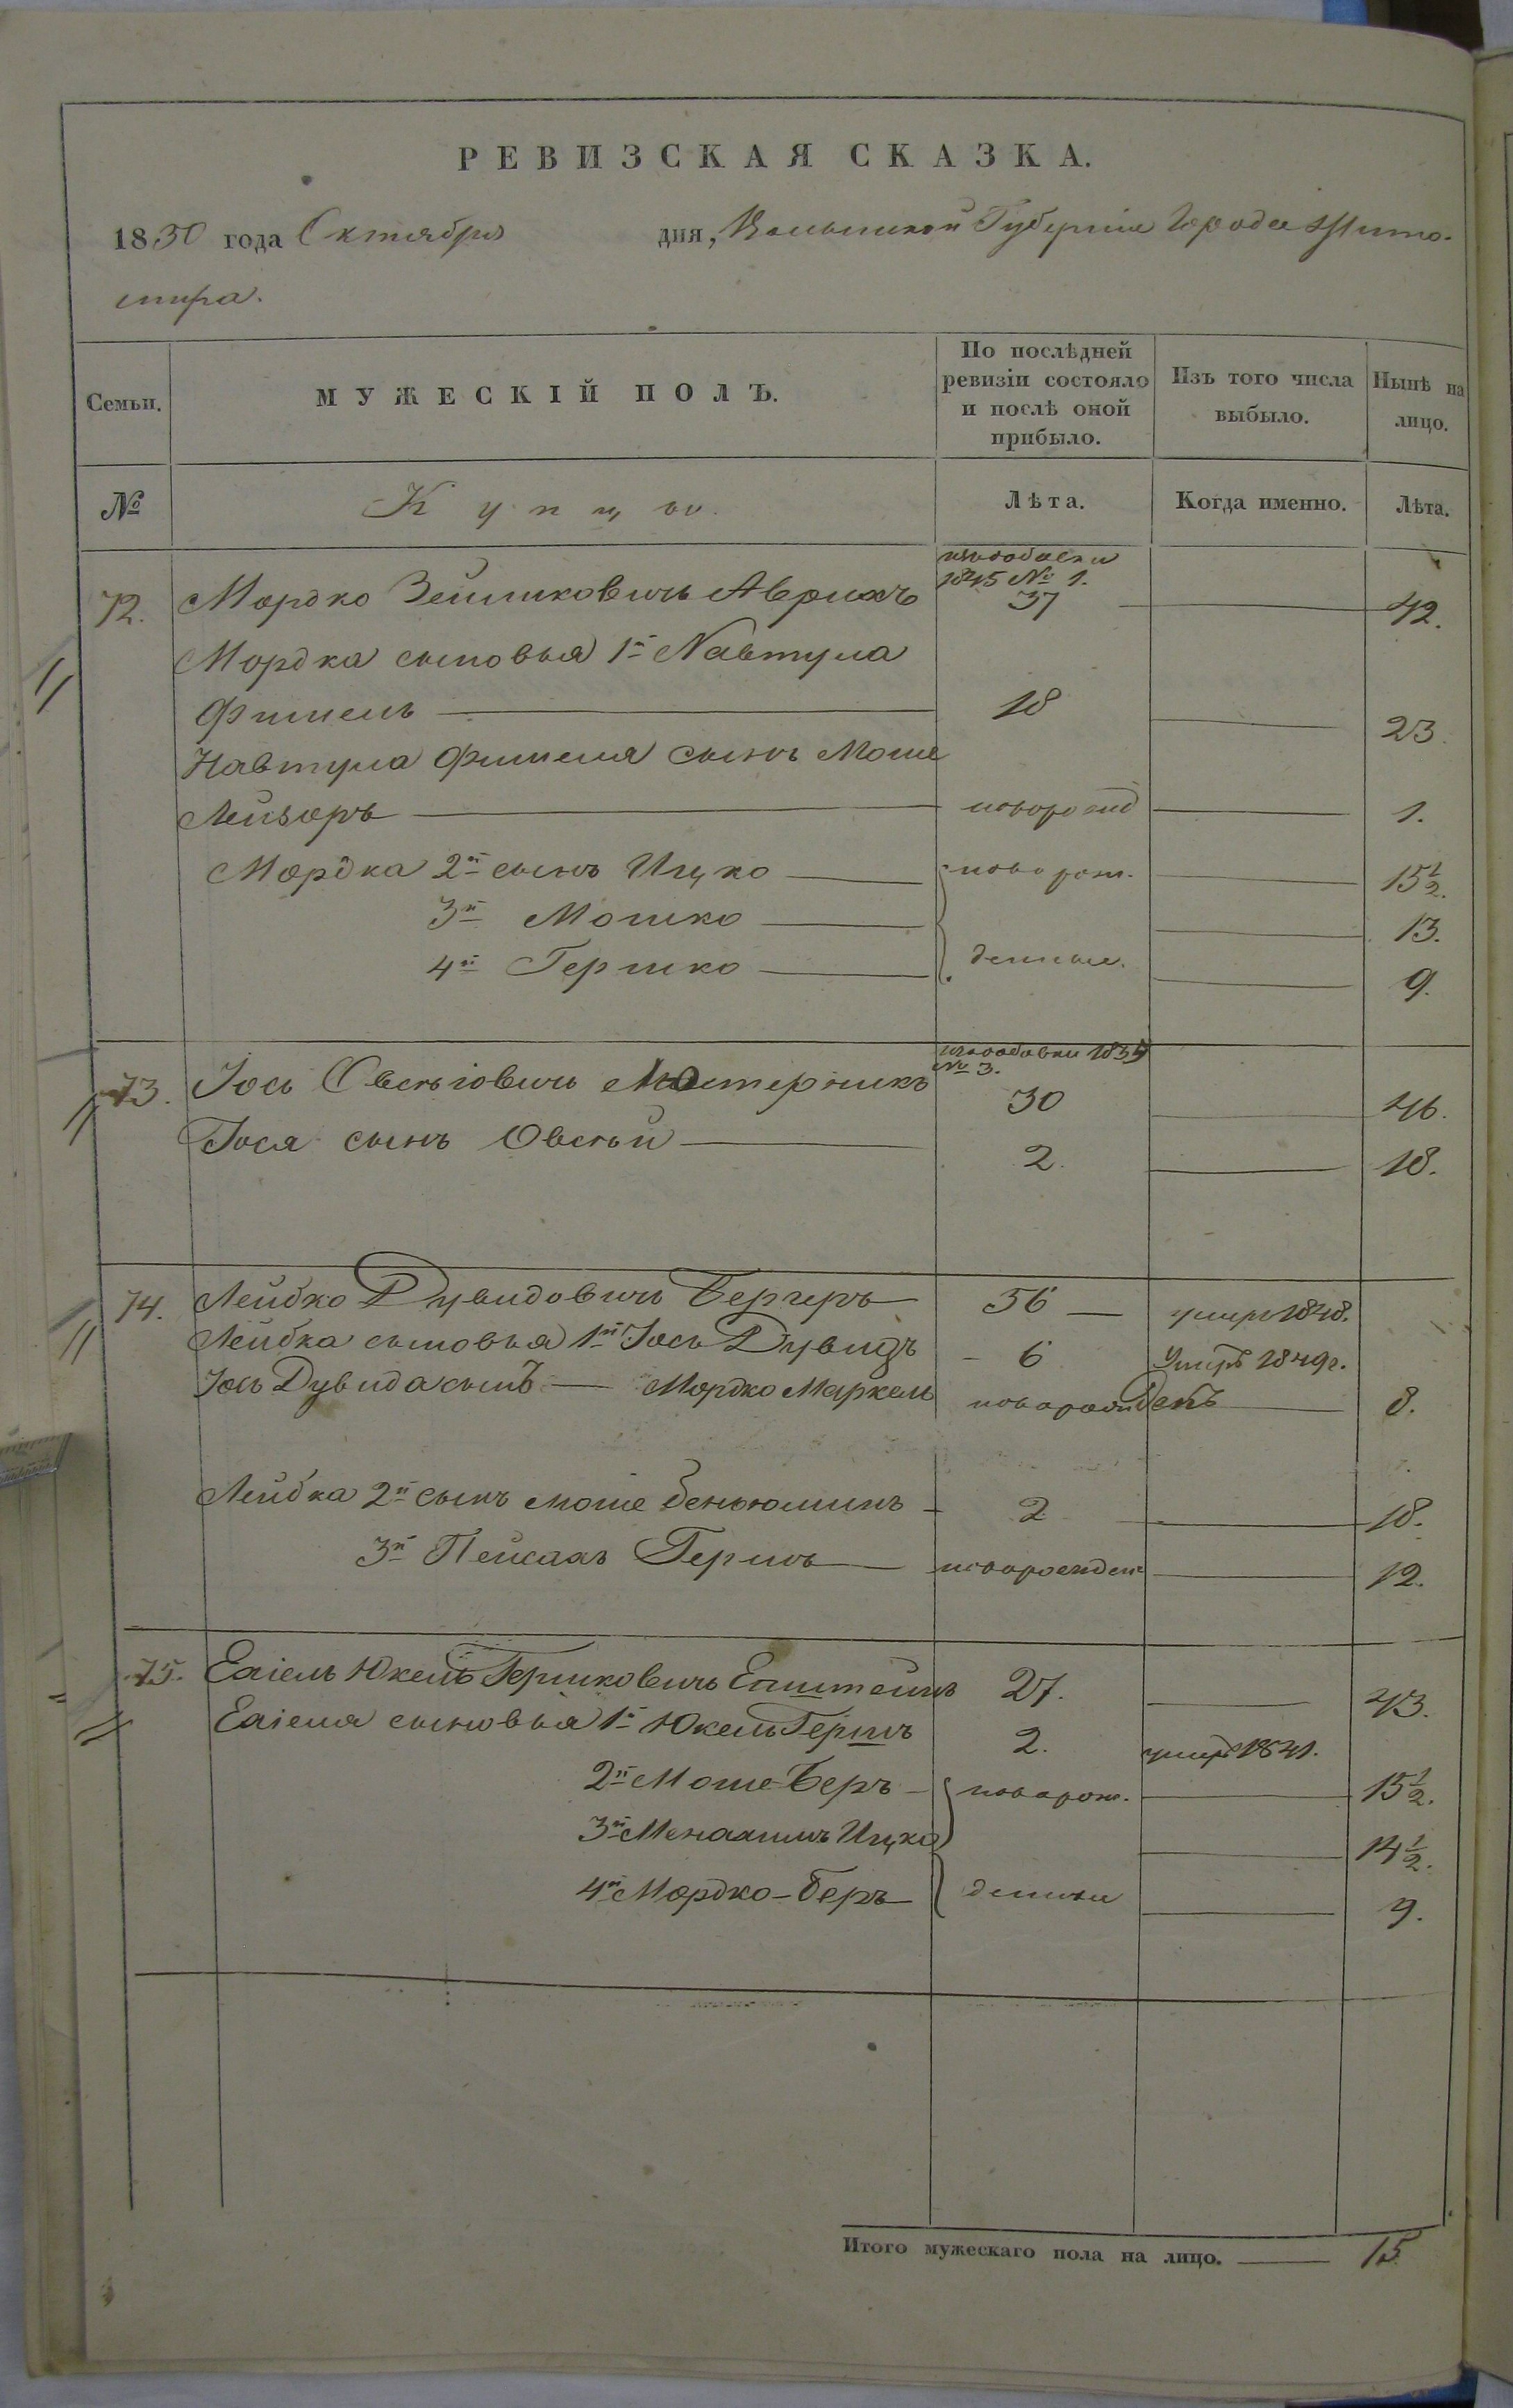 РЕВИЗСКАЯ СКАЗКА.
1850 года Октября дня, Волынской Губерніи Города Жито-
мира.
Семьи.
МУЖЕСКІЙ ПОЛЪ.
По послѣдней
ревизіи состояло
и послѣ оной
прибыло.
Изъ того числа
выбыло.
Нынѣ на
лицо.
№
Купцы.
Лѣта.
Когда именно.
Лѣта.
1845 № 1.
72. Мордко Зейликовичъ Аврихъ 37 42.
Мордка сыновья 1й Навтула
Фишель 18 23.
Навтула Фишеля сынъ Моше
Лейзоръ новорожд 1.
Мордка 2й сынъ Ицко новорож- 15½.
3й Мошко 13.
4й Гершко денные. 9.
№ 3.
73. Іось Овсѣіовичъ Мастерникъ 30 46.
Іося сынъ Овсѣй 2. 18.
74. Лейбко Дувидовичъ Бергеръ 56 умеръ 1848.
Лейбка сыновья 1й Іось Дувидъ 6 Умеръ 1849г.
Іось Дувида сынъ Мордко Маркель новорожденъ 8.
Лейбка 2й сынъ Моше Беньюминъ 2 18.
3й Пейсахъ Гершъ новорожден 12.
75. Ехіель Юкель Гершковичъ Епштейнъ 27. 43.
Ехіеля сыновья 1й Юкель Гершъ 2. умеръ 1841.
2й Моше-Беръ новорож- 15½.
3й Менахимъ Ицко 14½.
4й Мордко-Беръ денные 9.
Итого мужескаго пола на лицо. 15